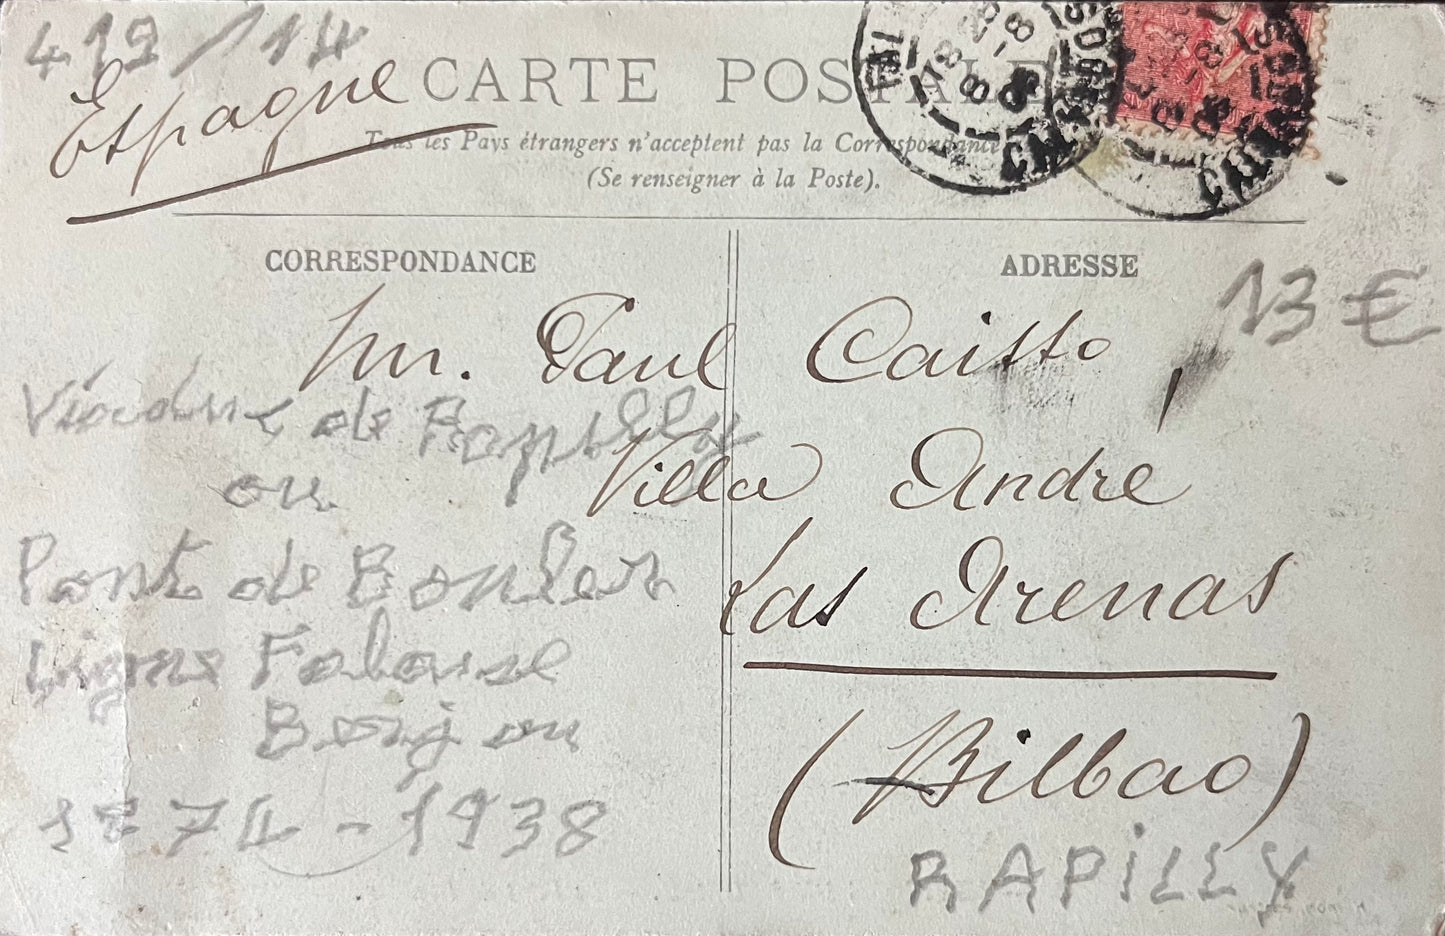 419/14
Espagne
CARTE POSTALE
Tous les Pays étrangers n'acceptent pas la Correspondance
(Se renseigner à la Poste).
CORRESPONDANCE
ADRESSE
13 €
Mr. Paul Caisso
Viaduc de Rapilly
Villa André
ou
Pont de
Las Arenas
Ligne Falaise
Berjou
(Bilbao)
1874-1938
RAPILLY